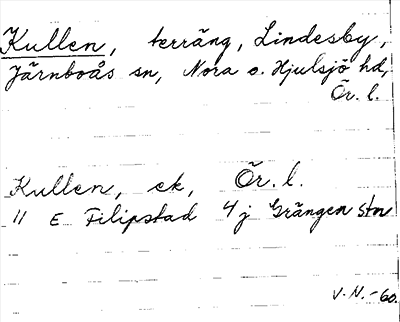 Kullen, terräng, Lindesby,
Järnboås sn, Nora o. Hjulsjö hd,
Ör. l.
Kullen, ek, Ör. l.
11 E Filipstad 4 j Grängen stn
V. N. -60.